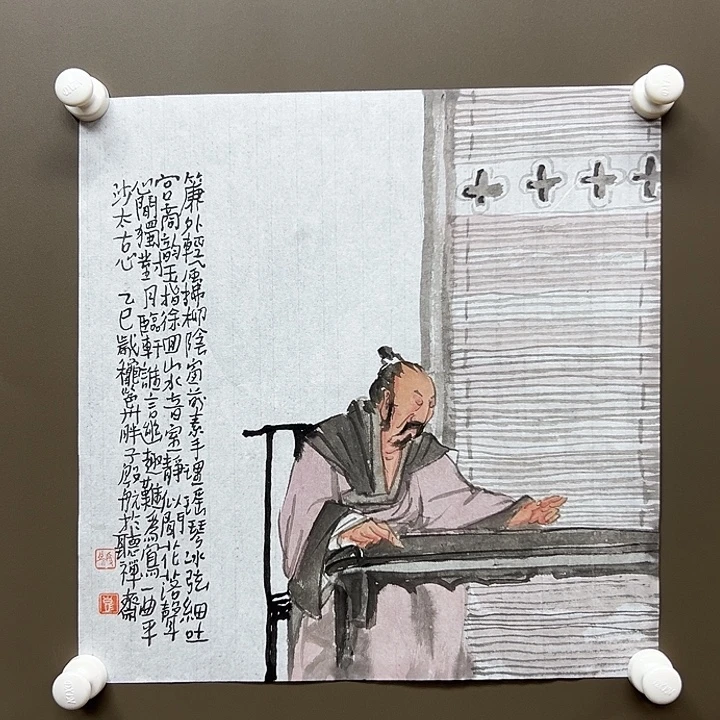 簾外輕風拂柳陰窗前素手理瑤琴冰弦細吐
宮商韵玉指徐回山水音室靜似聞花落聲
心閒獨對月臨軒誰言趣難為寫一曲平
沙太古心 乙巳歲龝胖子殷航於聽禪齋